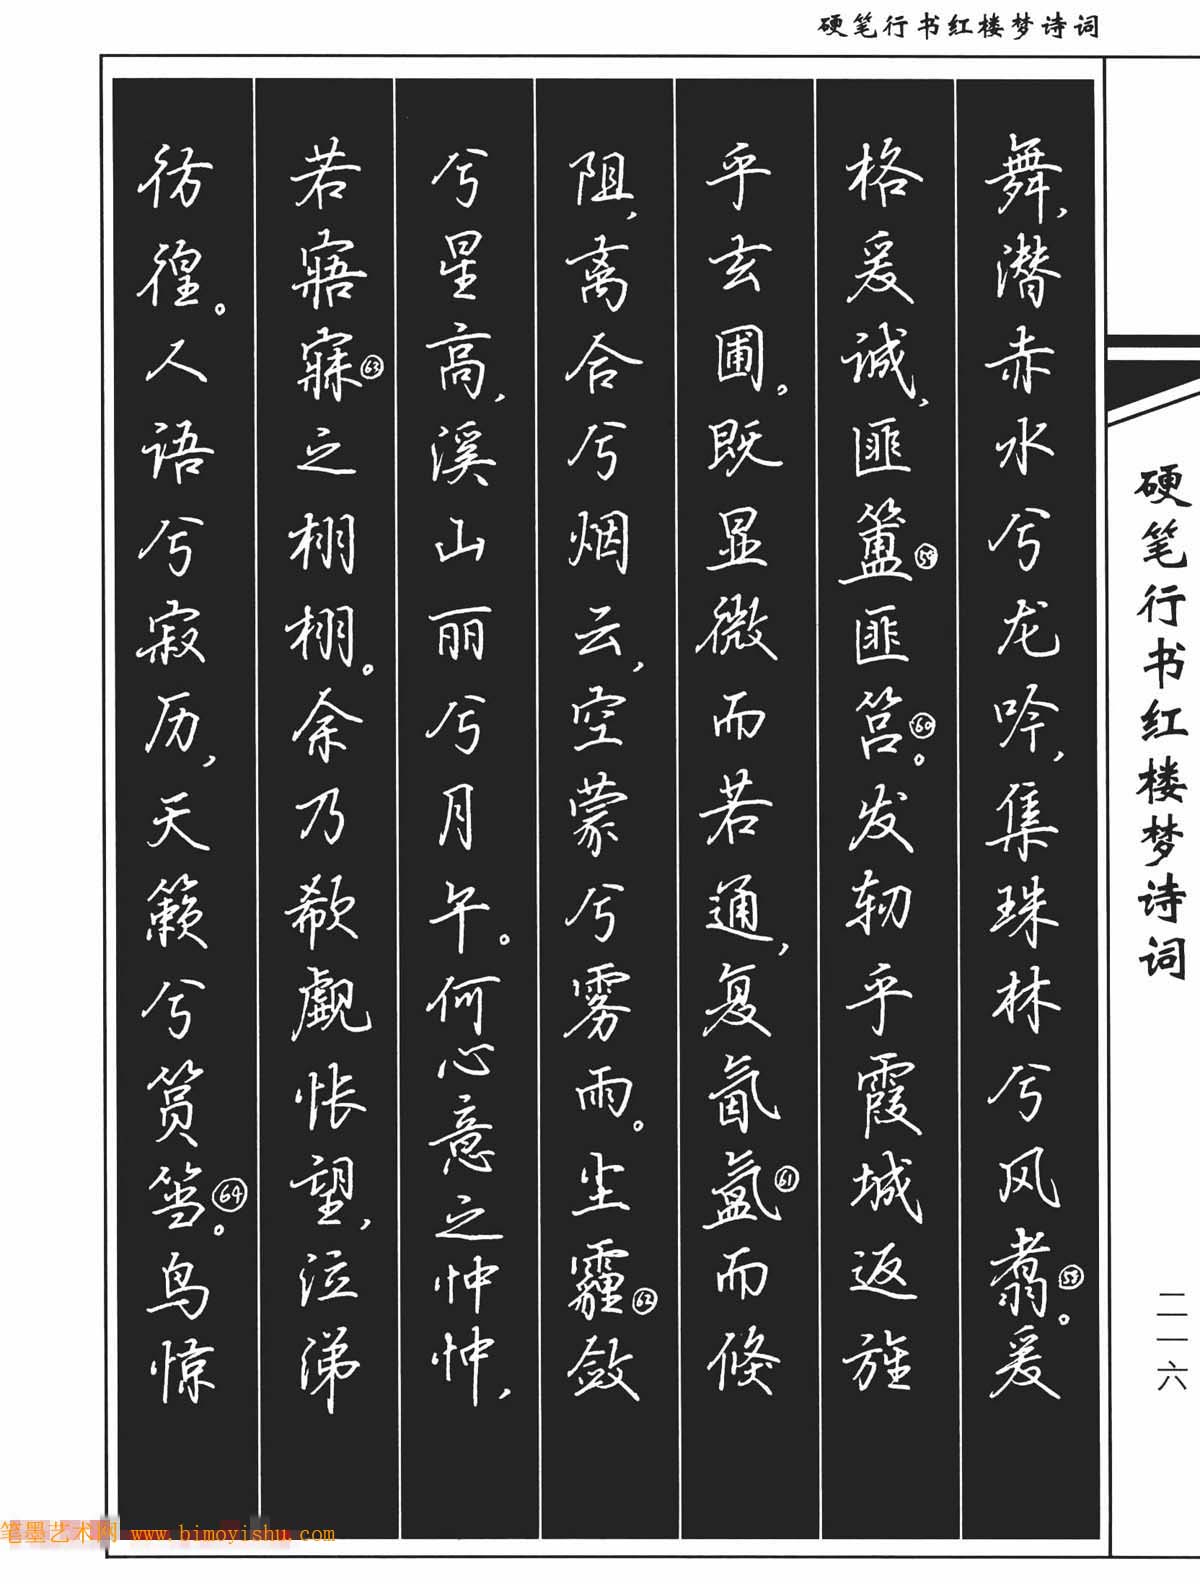 硬笔行书红楼梦诗词
舞，潜赤水兮龙吟，集珠林兮风翥㊽。爰
格爰诚，匪簠㊾匪筥㊿。发轫乎霞城，返旌
乎玄圃。既显微而若通，复氤氲而倏
阻，离合兮烟云，空蒙兮雾雨。尘霾敛
兮星高，溪山丽兮月午。何心意之忡忡，
若寤寐之栩栩。余乃欷歔怅望，泣涕
彷徨。人语兮寂历，天籁兮筼筜。鸟惊
硬笔行书红楼梦诗词
二一六
笔墨艺术网 www.bimoyishu.com